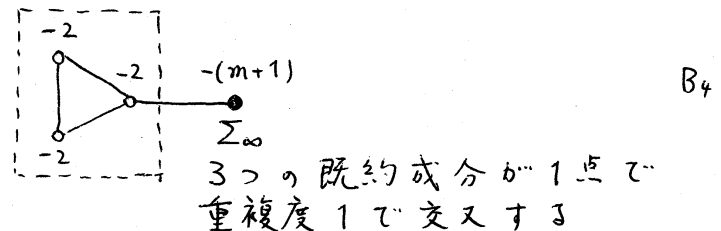 -2
-2 -(m+1)
B₄
-2
Σ∞
3つの既約成分が1点で
重複度1で交叉する